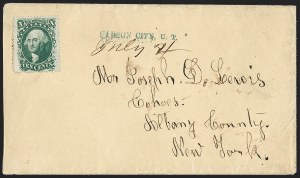 TEN CENTS
CARSON CITY, U. T.
July 4
Mr Joseph D. Lewis
Cohoes.
Albany County.
New York.